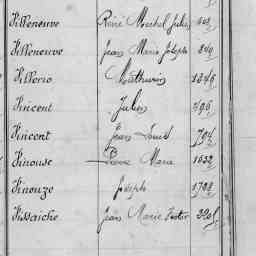 Villeneuve René Michel Julien 403
Villeneuve Jean Marie Joseph 840
Villerio Mathurin 1346
Vincent Julien 496
Vincent Jean Louis 794
Vinouse Pierre Marie 1632
Vinouze Joseph 1798
Vissaiche Jean Marie